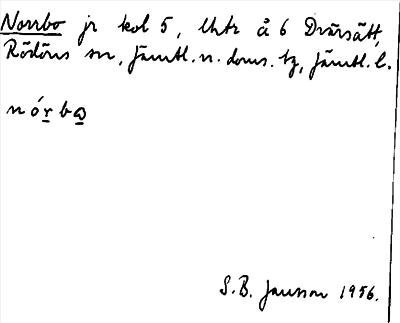 Norrbo jr kol 5, Uhtr å 6 Dvärsätt,
Rödöns sn, Jämtl. n. doms. tg, Jämtl. l.
n ó r b ω
S.B. Jansson 1956.